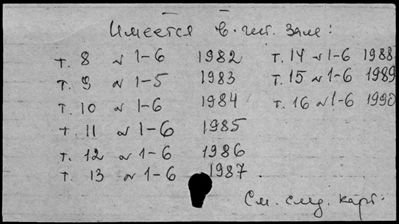 Имеется в чит. зале:
т. 8 № 1-6 1982
т. 9 № 1-5 1983
т. 10 № 1-6 1984
т. 11 № 1-6 1985
т. 12 № 1-6 1986
т. 13 № 1-6 1987
т. 14 № 1-6 1988
т. 15 № 1-6 1989
т. 16 № 1-6 1990
См. след. карт.